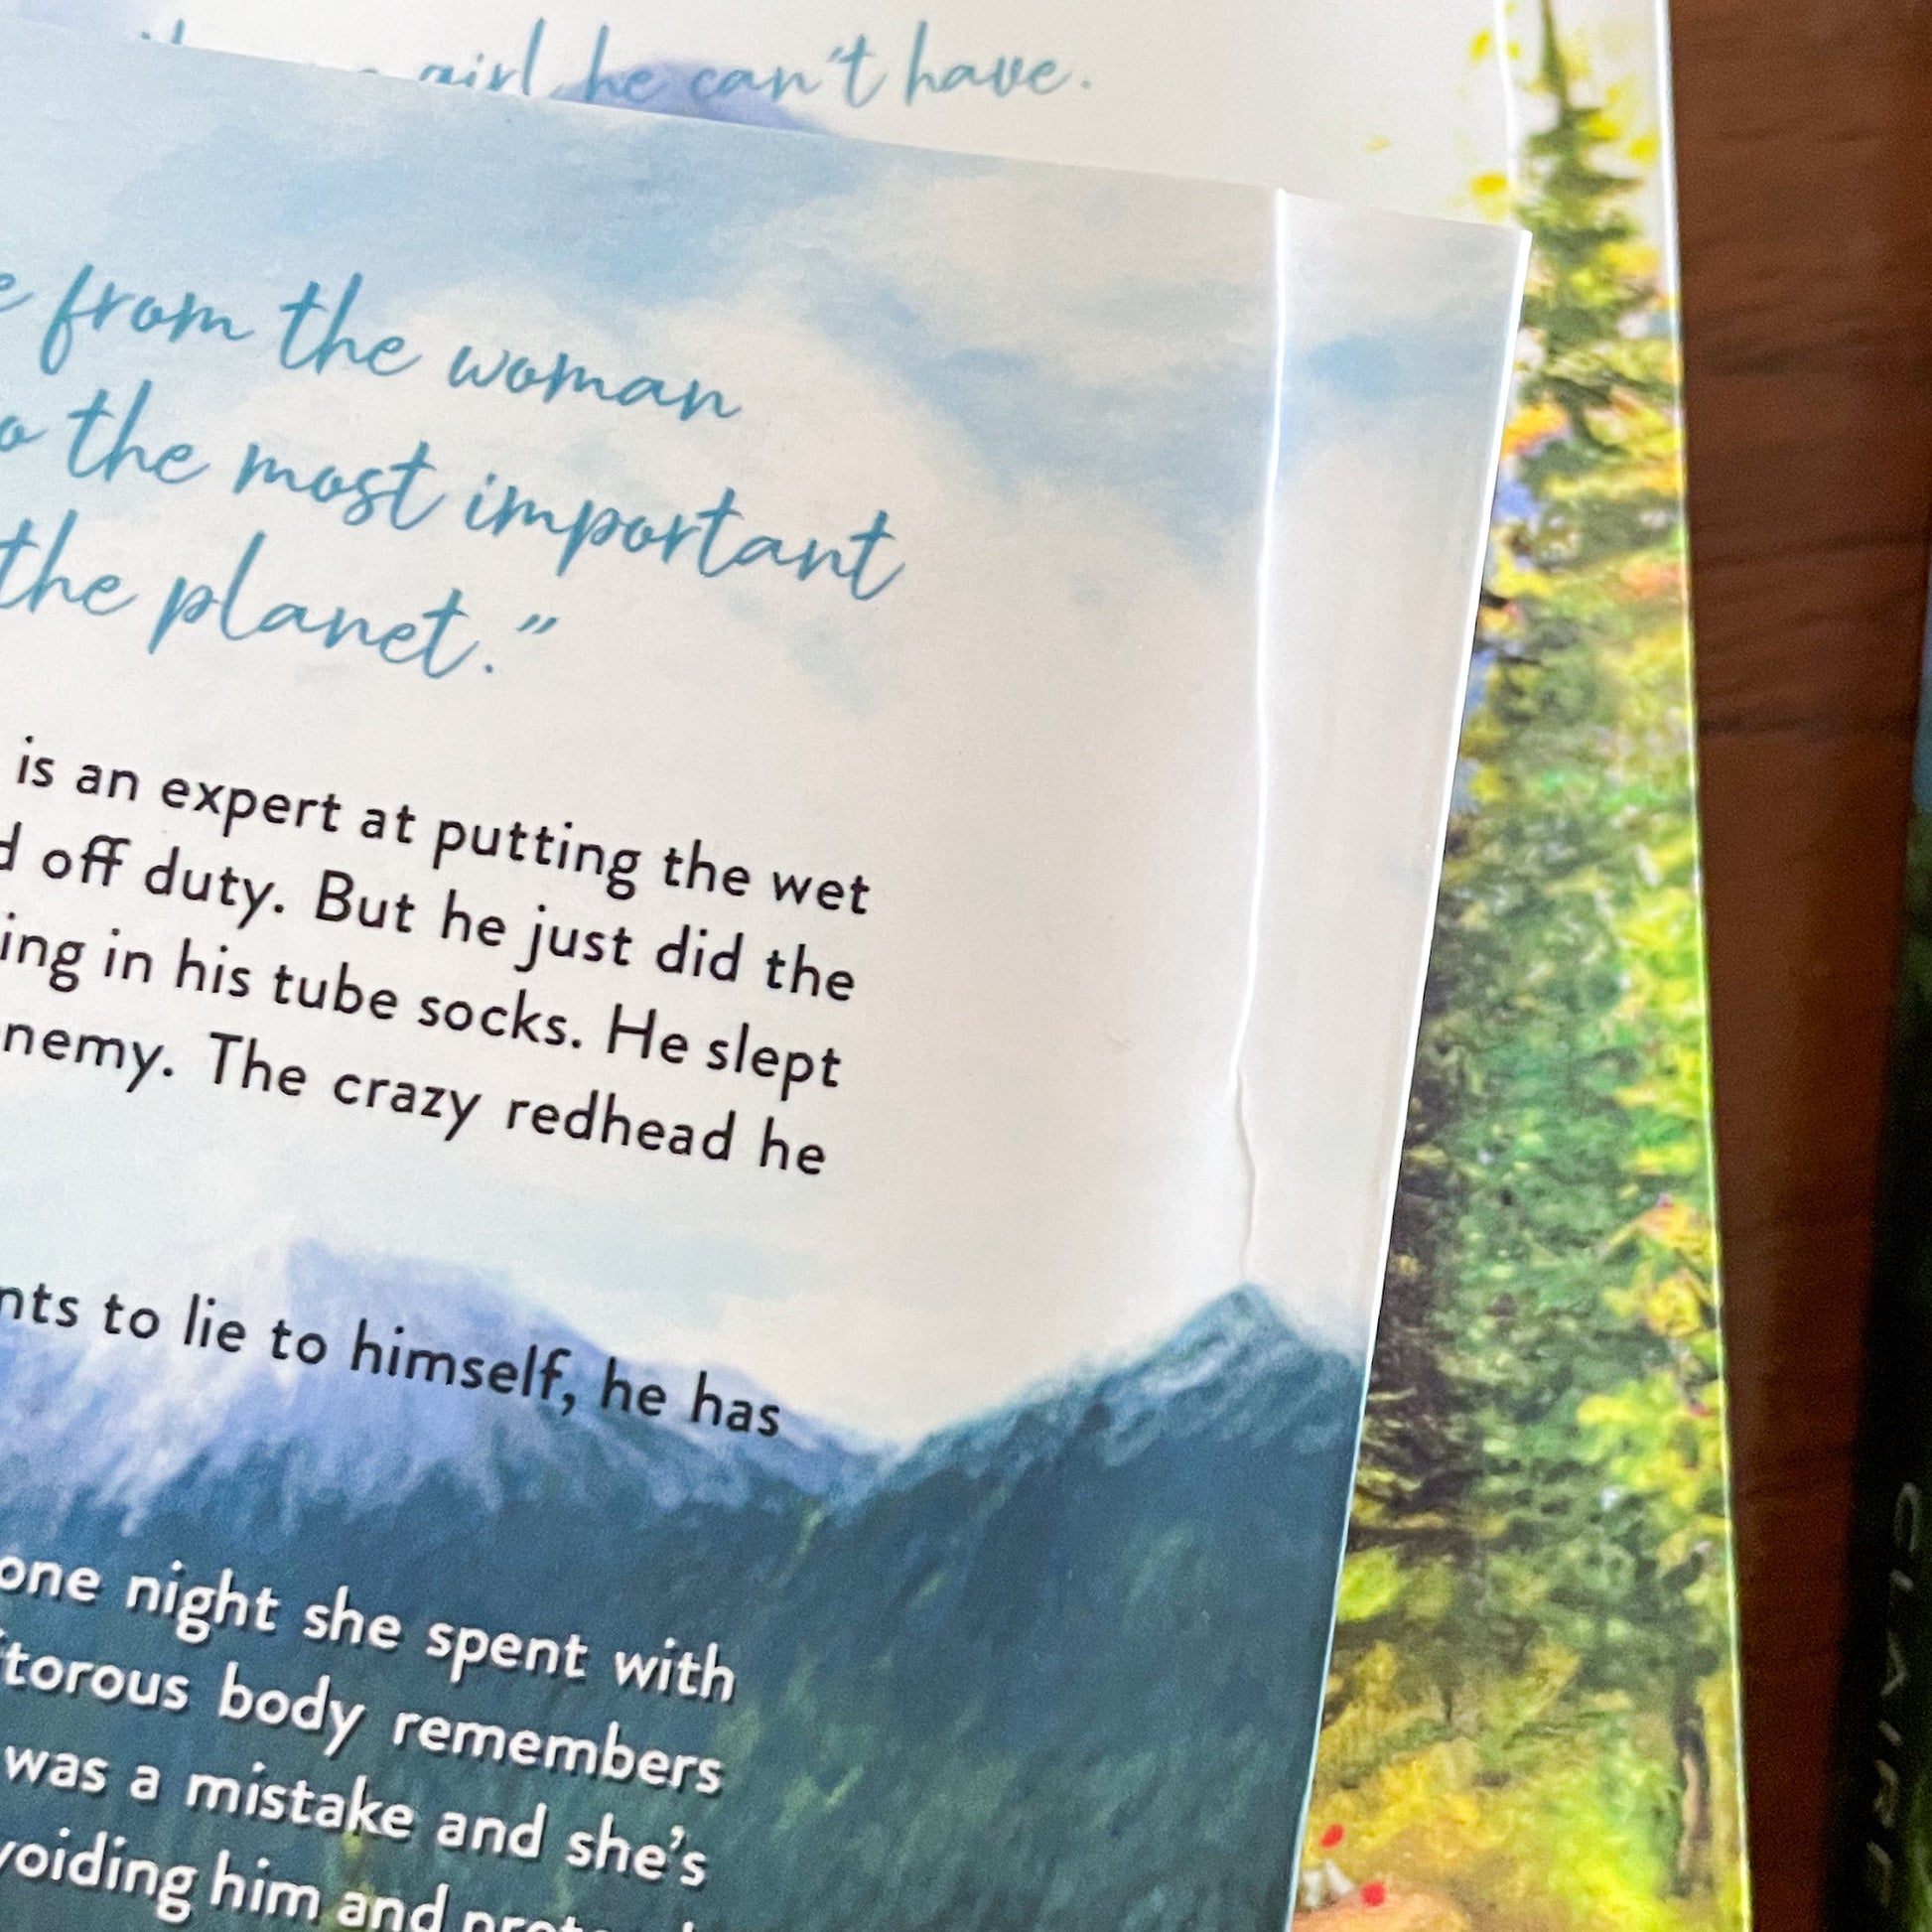 girl he can't have.
from the woman
the most important
the planet.”
is an expert at putting the wet
off duty. But he just did the
ing in his tube socks. He slept
nemy. The crazy redhead he
nts to lie to himself, he has
one night she spent with
itorous body remembers
was a mistake and she's
voiding him and
CLAIRE